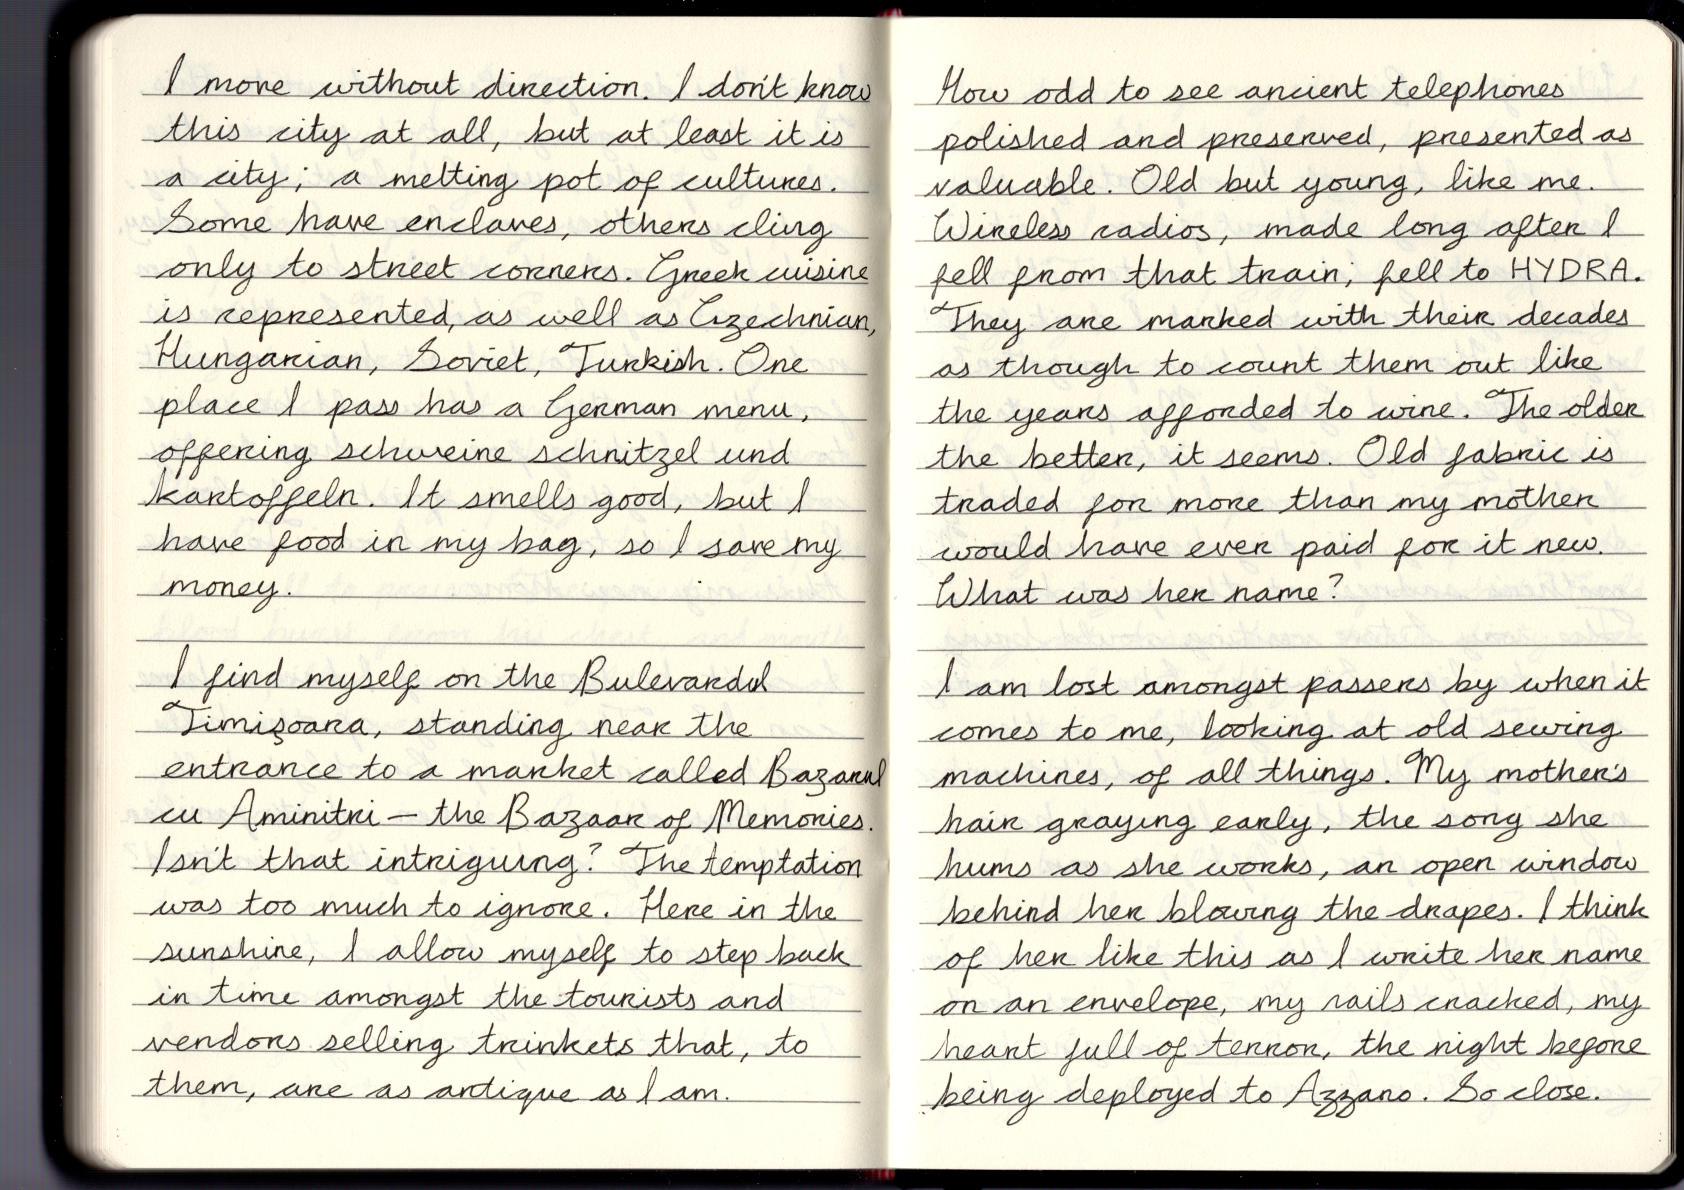 I move without direction. I don't know
this city at all, but at least it is
a city; a melting pot of cultures.
Some have enclaves, others cling
only to street corners. Greek cuisine
is represented, as well as Czechnian,
Hungarian, Soviet, Turkish. One
place I pass has a German menu,
offering schweine schnitzel und
kartoffeln. It smells good, but I
have food in my bag, so I save my
money.
I find myself on the Bulevardul
Timișoara, standing near the
entrance to a market called Bazarul
cu Aminitri — the Bazaar of Memories.
Isn't that intriguing? The temptation
was too much to ignore. Here in the
sunshine, I allow myself to step back
in time amongst the tourists and
vendors selling trinkets that, to
them, are as antique as I am.
How odd to see ancient telephones
polished and preserved, presented as
valuable. Old but young, like me.
Wireless radios, made long after I
fell from that train; fell to HYDRA.
They are marked with their decades
as though to count them out like
the years afforded to wine. The older
the better, it seems. Old fabric is
traded for more than my mother
would have ever paid for it new.
What was her name?
I am lost amongst passers by when it
comes to me, looking at old sewing
machines, of all things. My mother's
hair graying early, the song she
hums as she works, an open window
behind her blowing the drapes. I think
of her like this as I write her name
on an envelope, my nails cracked, my
heart full of terror, the night before
being deployed to Azzano. So close.